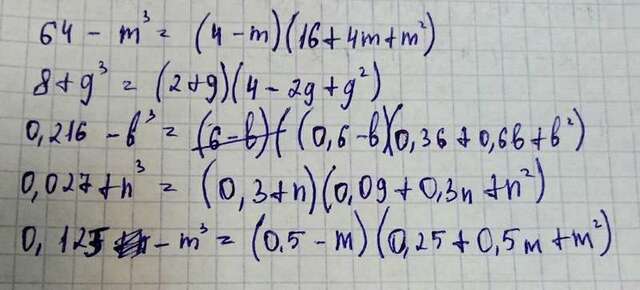 64 - m³ = (4-m)(16+4m+m²)
8+g³ = (2+g)(4-2g+g²)
0,216 - b³ = (0,6-b)(0,36+0,6b+b²)
0,027+n³ = (0,3+n)(0,09+0,3n+n²)
0,125 - m³ = (0.5-m)(0,25+0,5m+m²)